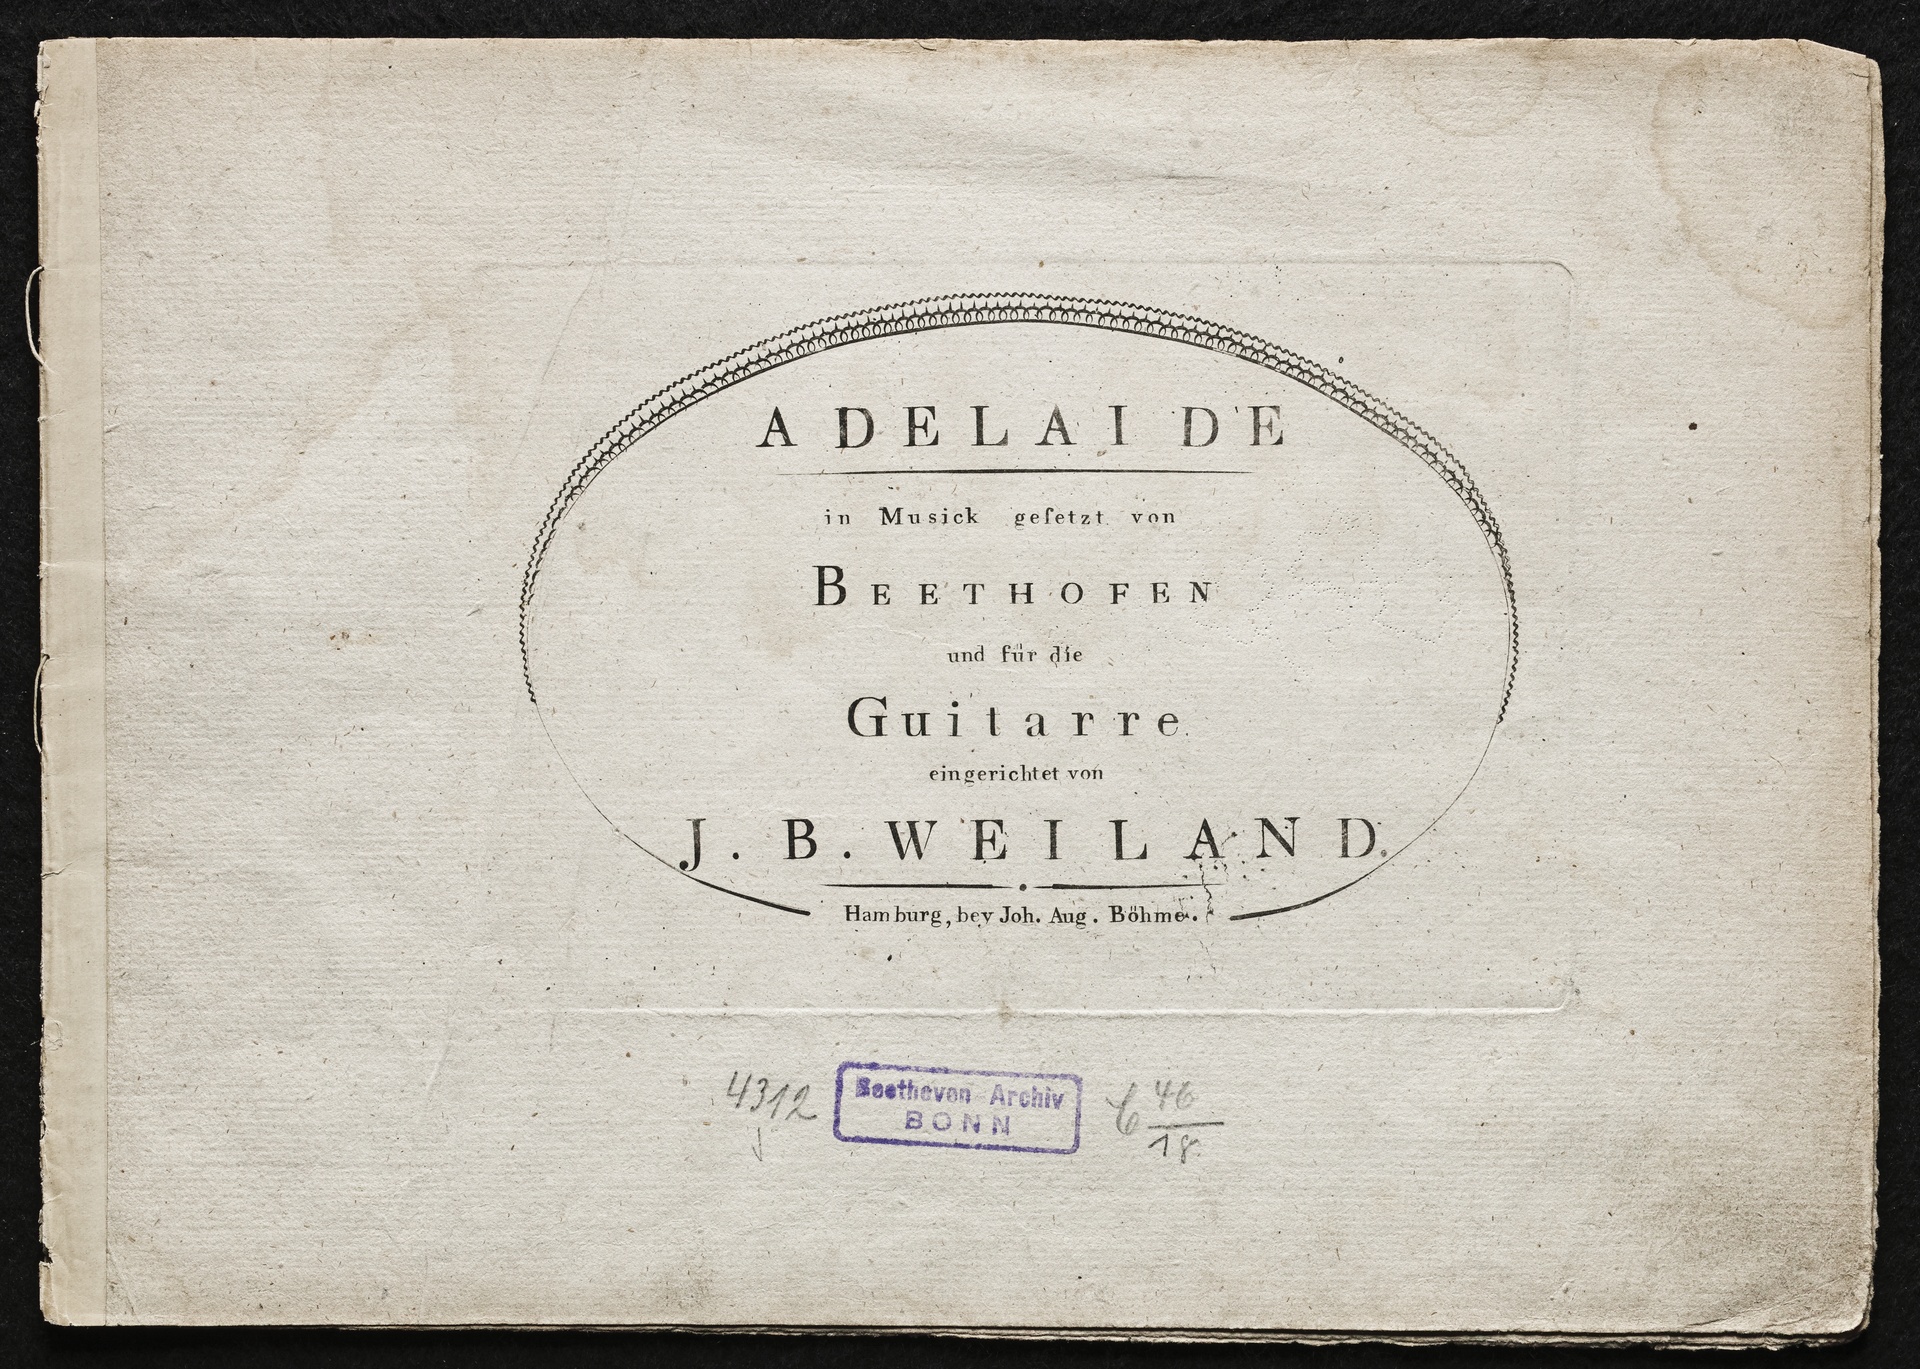 ADELAIDE
in Musick geſetzt von
BEETHOFEN
und für die
Guitarre
eingerichtet von
J. B. WEILAND.
Hamburg, bey Joh. Aug. Böhme.
4312 Beethoven-Archiv C 46
BONN 18